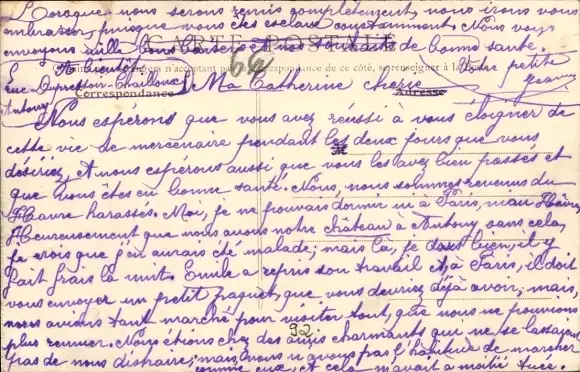 Lorsque nous serons remis complètement, nous irons vous
embrasser, puisque vous êtes esclave constamment. Nous vous
envoyons mille bons baisers et nos souhaits de bonne santé.
CARTE POSTALE
64
A bientôt
Votre petite
n'acceptant pas correspondance de ce côté, se renseigner à la
Rue Dupression-Chailloux
Antony
Ma Catherine chérie
Correspondance
Adresse
Nous espérons que vous avez réussi à vous éloigner de
cette vie de mercenaire pendant les deux jours que vous
désiriez, et nous espérons aussi que vous les avez bien passés et
que vous êtes en bonne santé. Nous, nous sommes revenus du
Havre harassés. Moi, je ne pouvais dormir ni à Paris, ni au Havre,
Heureusement que nous avons notre château à Antony, sans cela,
je crois que j'en aurais été malade; mais là, je dors bien, il y
fait frais la nuit. Emile a repris son travail et, à Paris, il doit
vous envoyer un petit paquet, que vous devriez déjà avoir, mais,
nous avions tant marché pour visiter tout, que nous ne pouvions
plus remuer. Nous étions chez des amis charmants qui ne se lassaient
92
pas de nous distraire; mais, nous n'avons pas l'habitude de marcher
comme eux, et cela m'avait à moitié tuée.